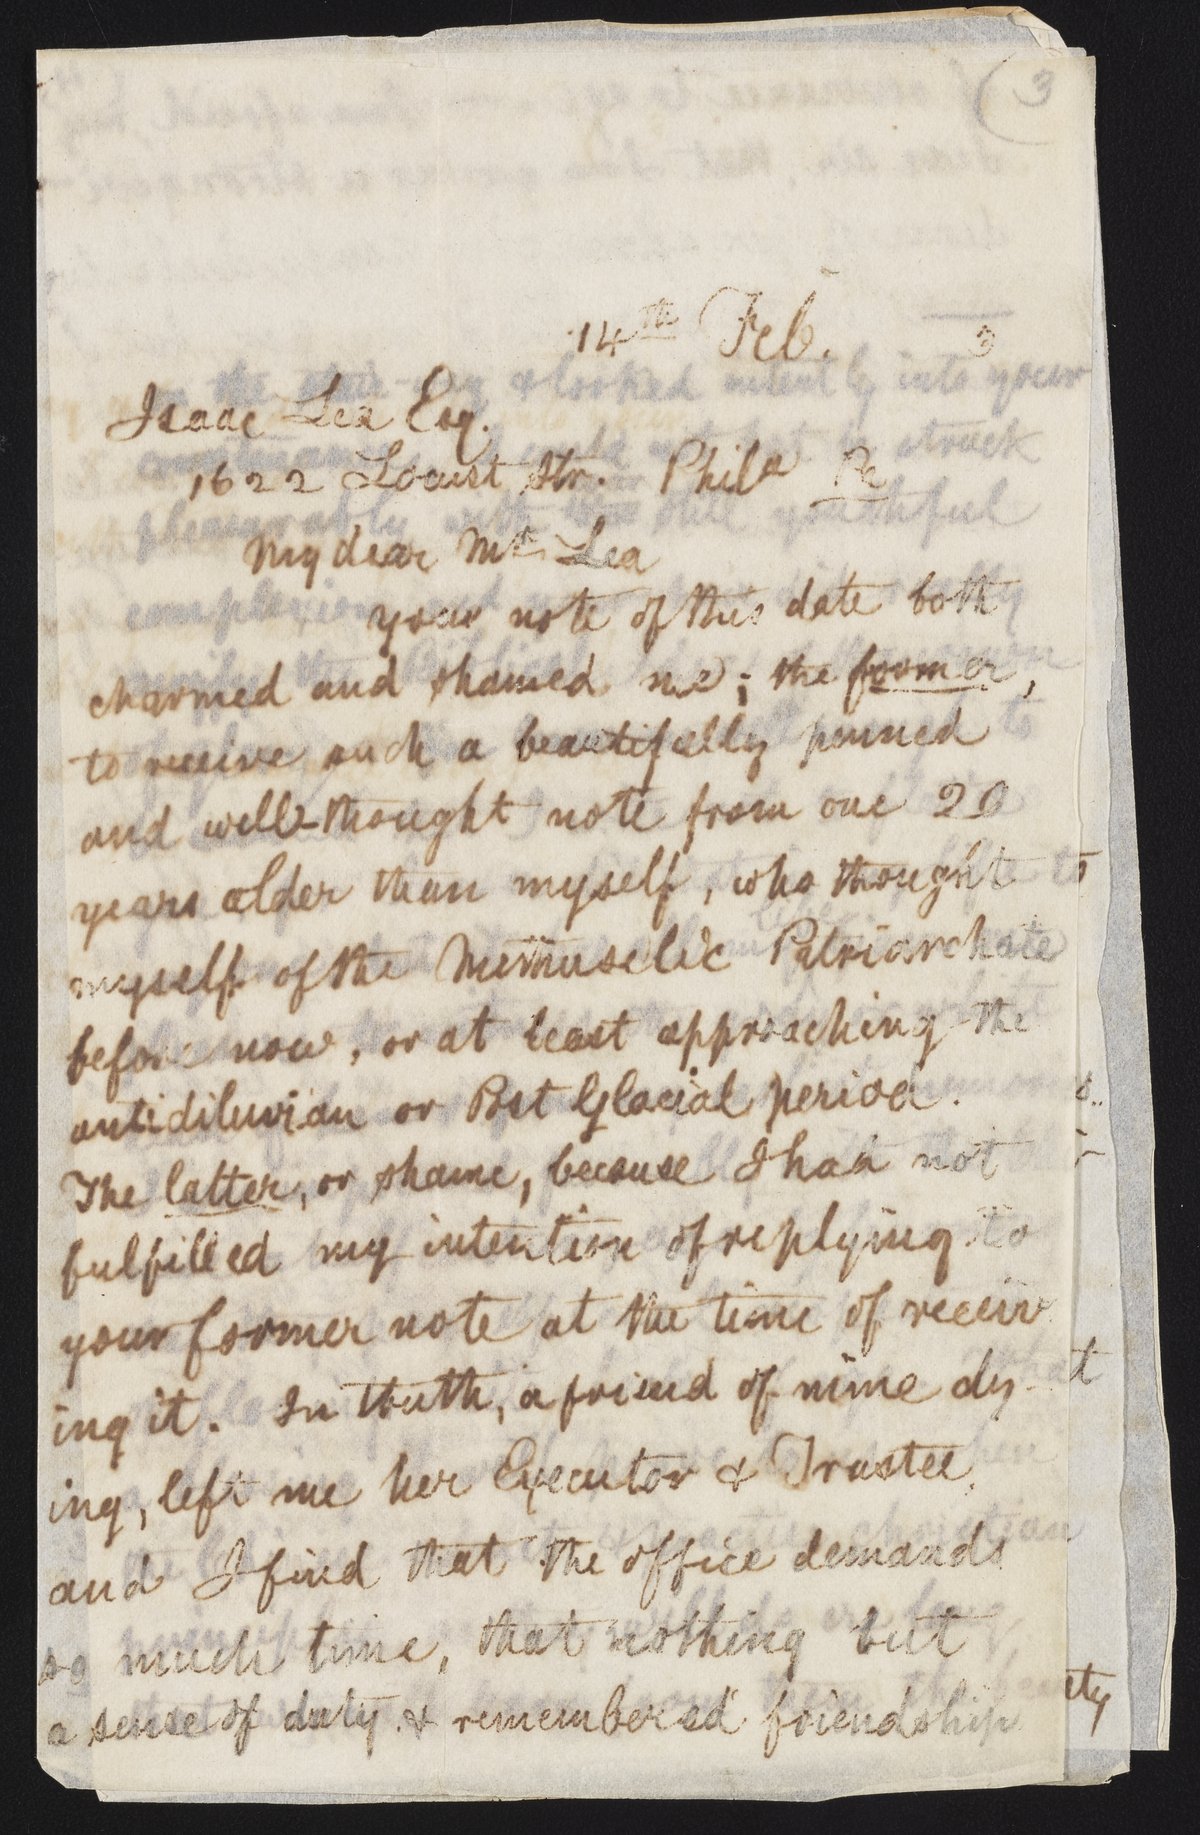 3
14th Feb. 3
Isaac Lea Esq.
1622 Locust Str. Phila Pa
My dear Mr. Lea
your note of this date both
charmed and shamed me; the former,
to receive such a beautifully penned
and well-thought note from one 20
years older than myself, who thought
myself of the Methuselic Patriarchate
before now, or at least approaching the
antidiluvian or Post Glacial period.
The latter, or shame, because I had not
fulfilled my intention of replying to
your former note at the time of receiv
ing it. In truth, a friend of mine dy-
ing, left me her Executor & Trustee,
and I find that the office demands
so much time, that nothing but
a sense of duty & remembered friendship